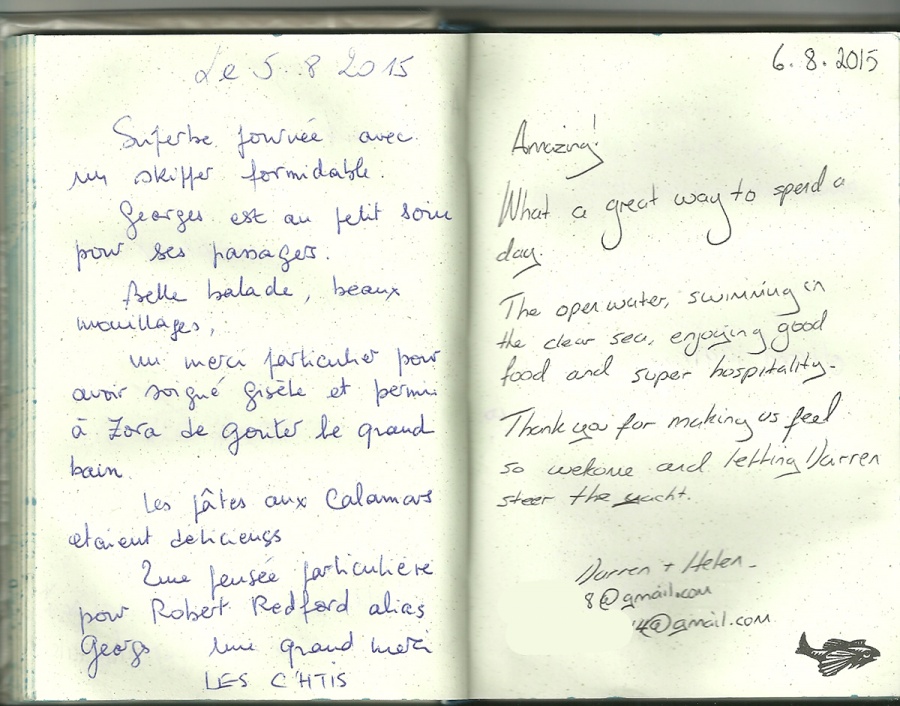 Le 5. 8 2015
Superbe journée avec
un skipper formidable.
Georges est au petit soin
pour ses passages.
Belle balade, beaux
mouillages,
un merci particulier pour
avoir soigné Gisèle et permi
à Zora de gouter le grand
bain.
Les pâtes aux Calamars
etaient delicieuses
Une pensée particuliere
pour Robert Redford alias
Georgs une grand merci
LES C'HTIS
6. 8. 2015
Amazing!
What a great way to spend a
day.
The open water, swimming in
the clear sea, enjoying good
food and super hospitality.
Thank you for making us feel
so welcome and letting Darren
steer the yacht.
Darren + Helen
8@gmail.com
4@gmail.com